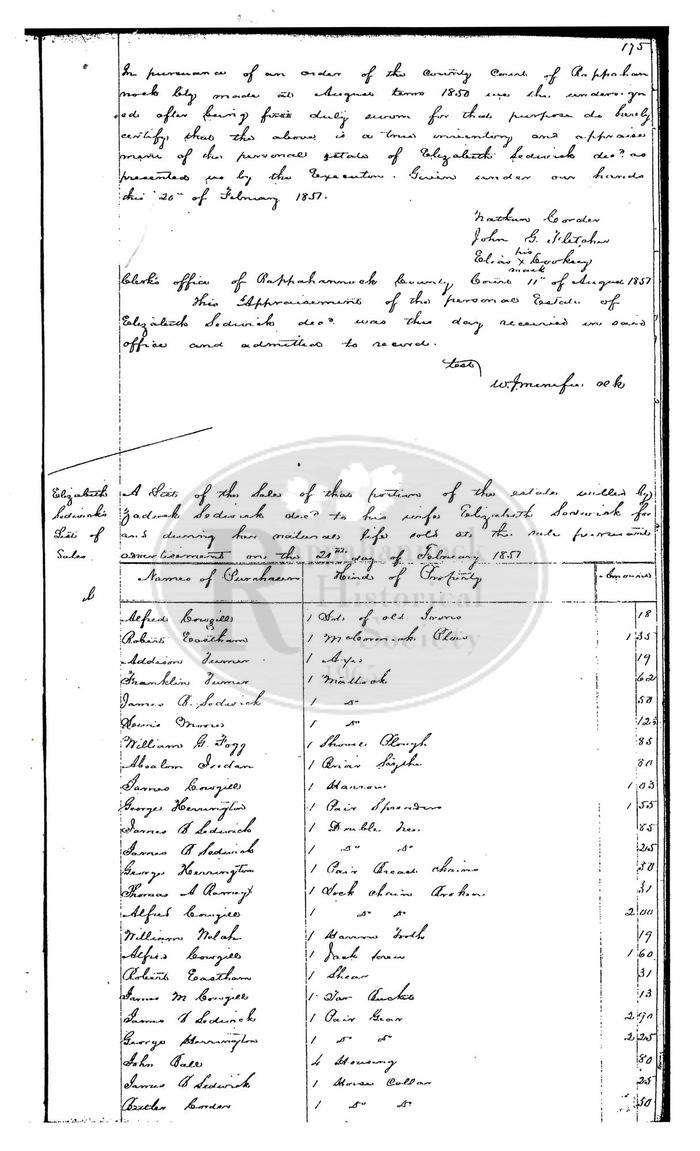 175
In pursuance of an order of the County Court of Rappahan
nock Cty made at August term 1850 we the undersign
ed after being first duly sworn for that purpose do hereby
certify that the above is a true inventory and appraise
ment of the personal estate of Elizabeth Sedwick decd as
presented us by the Executor. Given under our hands
this 20th of February 1851.
Nathan Corder
John G. Fletcher
his
Elias x Cooksey
mark
Clerk's office of Rappahannock County Court 11th of August 1851
This Appraisement of the personal Estate of
Elizabeth Sedwick decd was this day received in said
office and admitted to record.
Test
W. J. Menefee clk
Elizabeth
Sedwick's
List of
Sales
A List of the Sales of that portion of the estate willed by
Zadock Sedwick decd to his wife Elizabeth Sedwick for
and during her natural life sold at the sale pursuant
advertisement on the 21st day of February 1851
Names of Purchasers Kind of Property Amount
Alfred Cowgill 1 Lot of old Irons 18
Robert Eastham 1 McCormick Plow 1 35
Addison Turner 1 Axe 19
Franklin Turner 1 Mattock 62
James B. Sedwick 1 Do 50
Lewis Moore 1 Do 12½
William G. Fogg 1 Shovel Plough 85
Absalom Jordan 1 Briar Sythe 80
James Cowgill 1 Harrow 1 03
George Herrington 1 Pair Spreaders 1 55
James B Sedwick 1 Double Tree 85
James B Sedwick 1 Do Do 25
George Herrington 1 Pair Breast chains 50
Thomas A Ramey 1 Lock chain Broken 31
Alfred Cowgill 1 Do Do 2 00
William Welsh 1 Harrow Tooth 19
Alfred Cowgill 1 Jack screw 1 60
Robert Eastham 1 Shear 31
James M Cowgill 1 Tar Bucket 13
James B Sedwick 1 Pair Gear 2 70
George Herrington 1 Do Do 2 25
John Ball 4 Housing 80
James B Sedwick 1 Horse Collar 25
Butler Corder 1 Do Do 50
R
Historical
Society